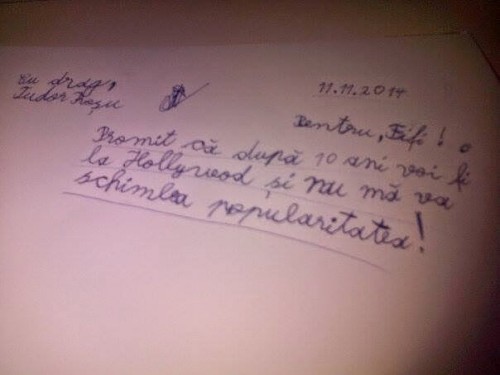 Cu drag,
Tudor Roșu
11.11.2014
Pentru, Fifi!
Promit că după 10 ani voi fi
la Hollywood și nu mă va
schimba popularitatea!